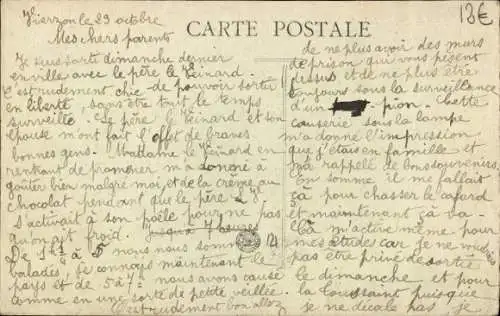 Vierzon le 23 octobre
CARTE POSTALE
12€
Mes chers parents
Je suis sorti dimanche dernier
en ville avec le père le Keinard.
C'est rudement chic de pouvoir sortir
en liberté, sans être tout le temps
surveillé. Le père le Keinard et son
épouse m'ont fait l'effet de braves
bonnes gens. Mattame le Keinard en
renkant de promener m'a donné à
goûter bien malgré moi, et de la crème au
chocolat pendant que le père L.K.
s'activait à son poêle pour ne pas
qu'on ait froid. Jusqu'à
De 1h½ à 5 nous nous sommes
baladés, je connais maintenant le
pays et de 5 à 7½ nous avons causé
comme en une sorte de petite veillée.
C'est rudement bon allez
de ne plus avoir des murs
de prison qui vous pèsent
dessus et de ne plus être
toujours sous la surveillance
d'un pion. Cette
causerie sous la lampe
m'a donné l'impression
que j'étais en famille et
m'a rappelé de bons souvenirs.
En somme il me fallait
ça pour chasser le cafard
et maintenant ça va.
Ça m'active même pour
mes études car je ne voudrais
pas être privé de sortie
le dimanche et pour
la Toussaint puisque
je ne décale pas je